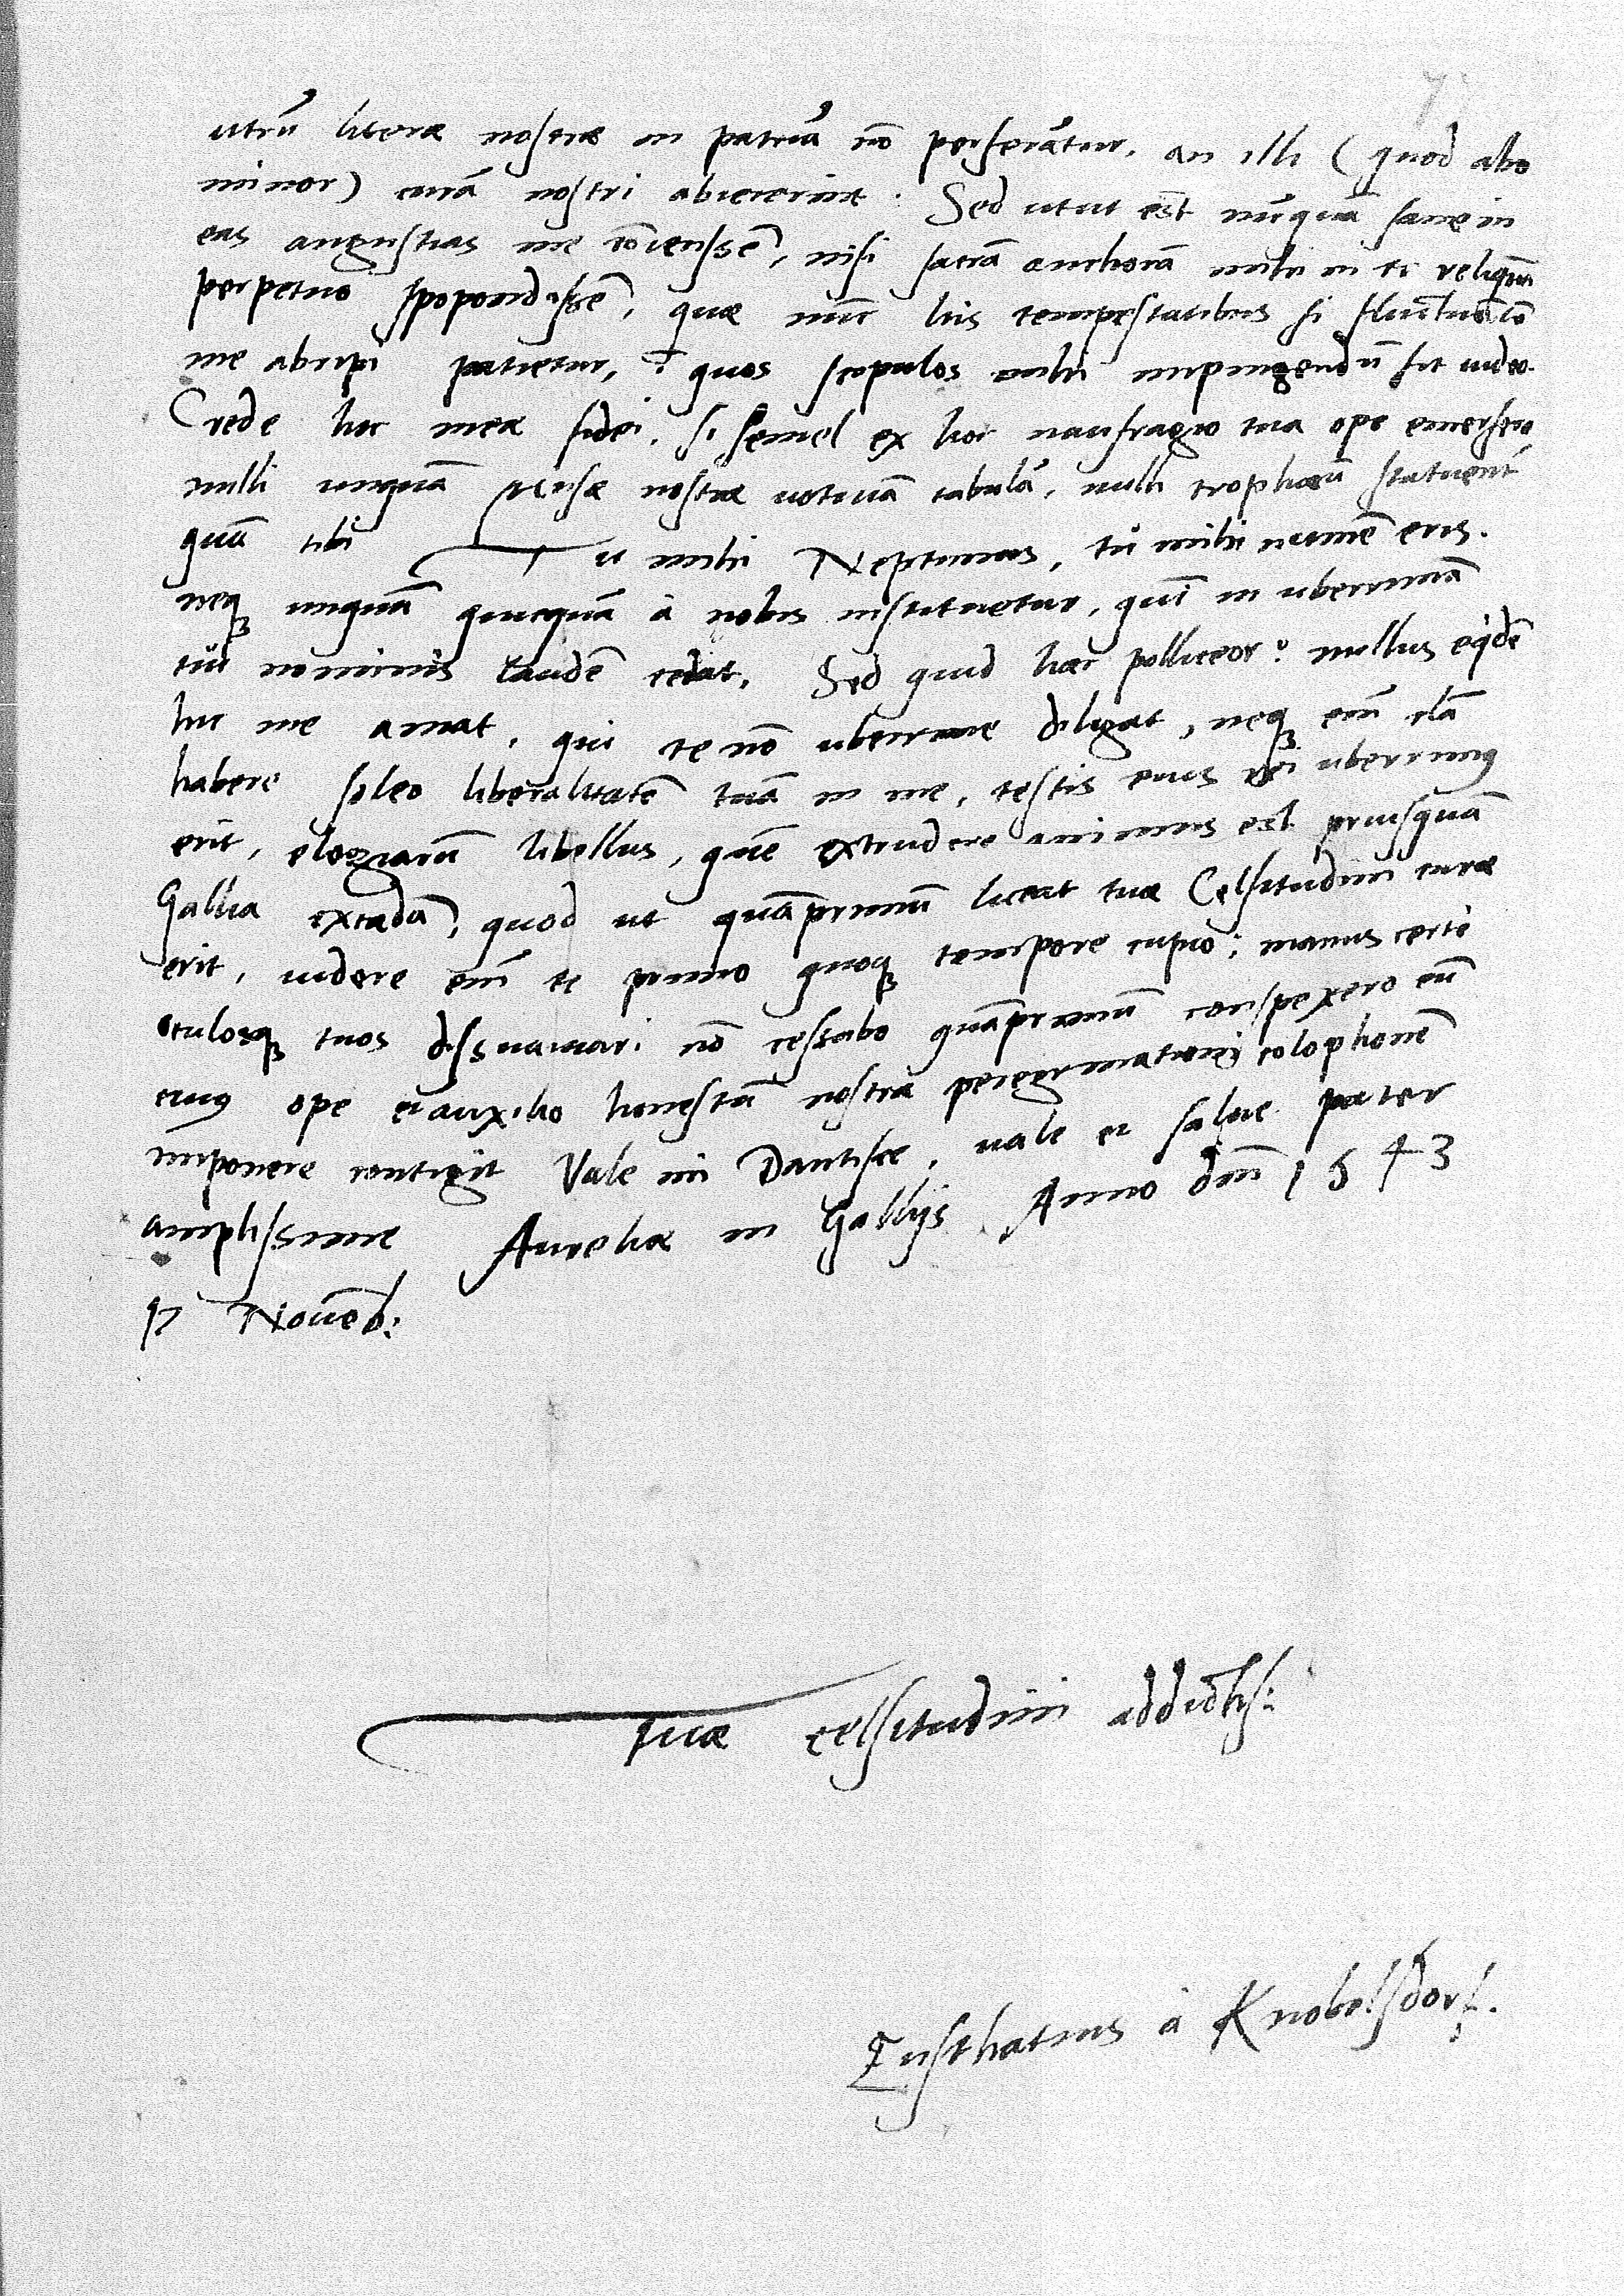 utrū literæ nostræ in patriā nō perferātur, an illi (quod abo
minor) curā nostri abiecerint. Sed utut est nūquā sane in
eas angustias me cōiecissē, nisi sacrā anchorā mihi in te reliquā
perpetuo spopondissē, quæ nūc his tempestatibus si fluctuātē
me abripi patietur, ī quos scopulos mihi impingendū sit uideo.
Crede hoc meæ fidei, si semel ex hoc naufragio tua ope emersero
nulli unquā Musæ nostræ uotiuā tabulā, nulli trophæū statuent
quā tibi Tu mihi Neptunus, tu mihi numē eris.
neq unquā quicquā à nobis instituetur, quī in uberrimā
tui nominis laudē cedat. Sed quid hæc polliceor? nullus eqdē
hic me amat, qui te nō uberrime diligat, neq em clā
habere soleo liberalitatē tuā in me, testis eius rei uberrimus
erit, elogiarū libellus, quē extrudere animus est priusquā
Gallia excedā, quod ut quāprimū liceat tuæ Celsitudini curæ
erit, uidere em te primo quoq tempore cupio; manus certe
oculosq tuos dissuauiari nō cessabo quāprimū conspexero eū
cuius ope et auxilio honestū nostræ peregrinationi colophonē
imponere contigit Vale mi Dantisce, uale et salue pater
amplissime Aureliæ in Gallijs Anno dni 1543
17 Nouēb:
Tuæ celsitudini addictis:
Eusthatius à Knobelsdorf.